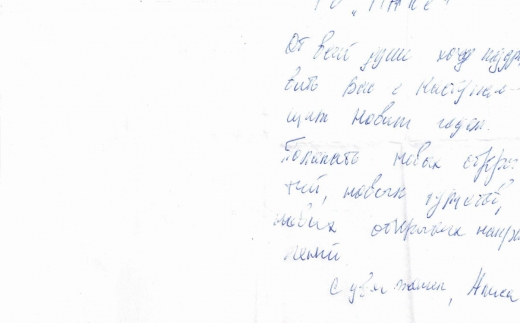 От всей души хочу поздра
вить Вас с Наступаю-
щим Новым годом.
Пожелать новых откры
тий, новых
новых открытых напра
лений.
С уважением,